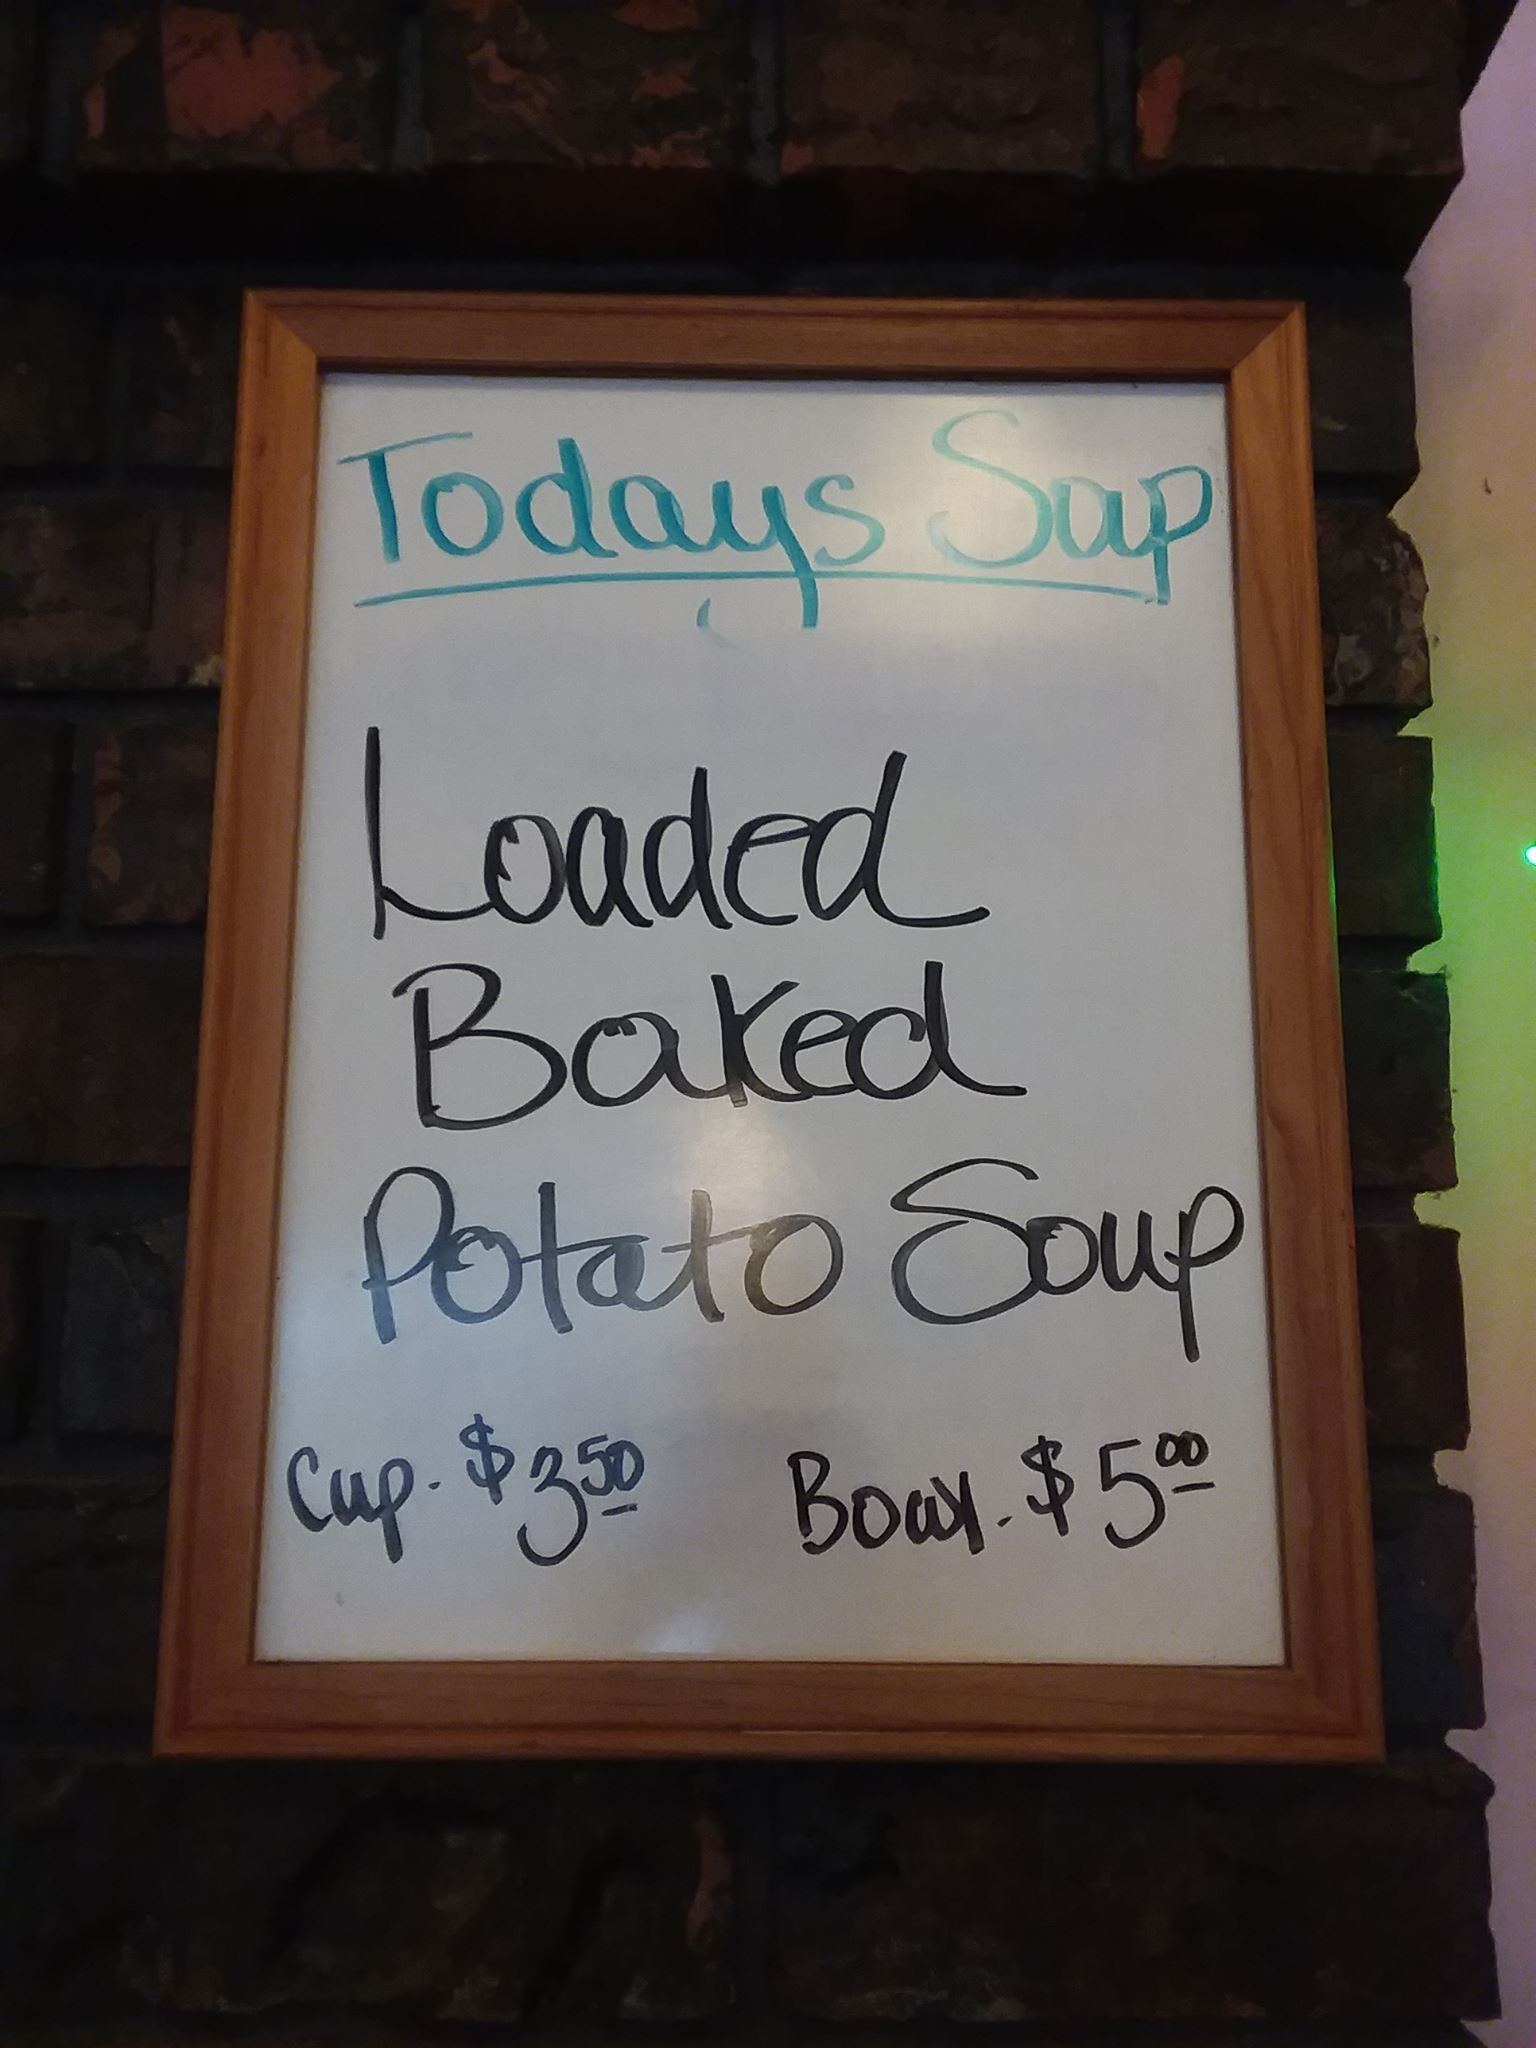 Todays Soup
Loaded
Baked
Potato Soup
Cup. $3.50 Bowl. $5.00